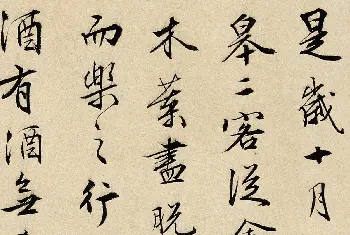 是歲十月
皋二客從余
木葉盡脫
而樂之行
酒有酒無